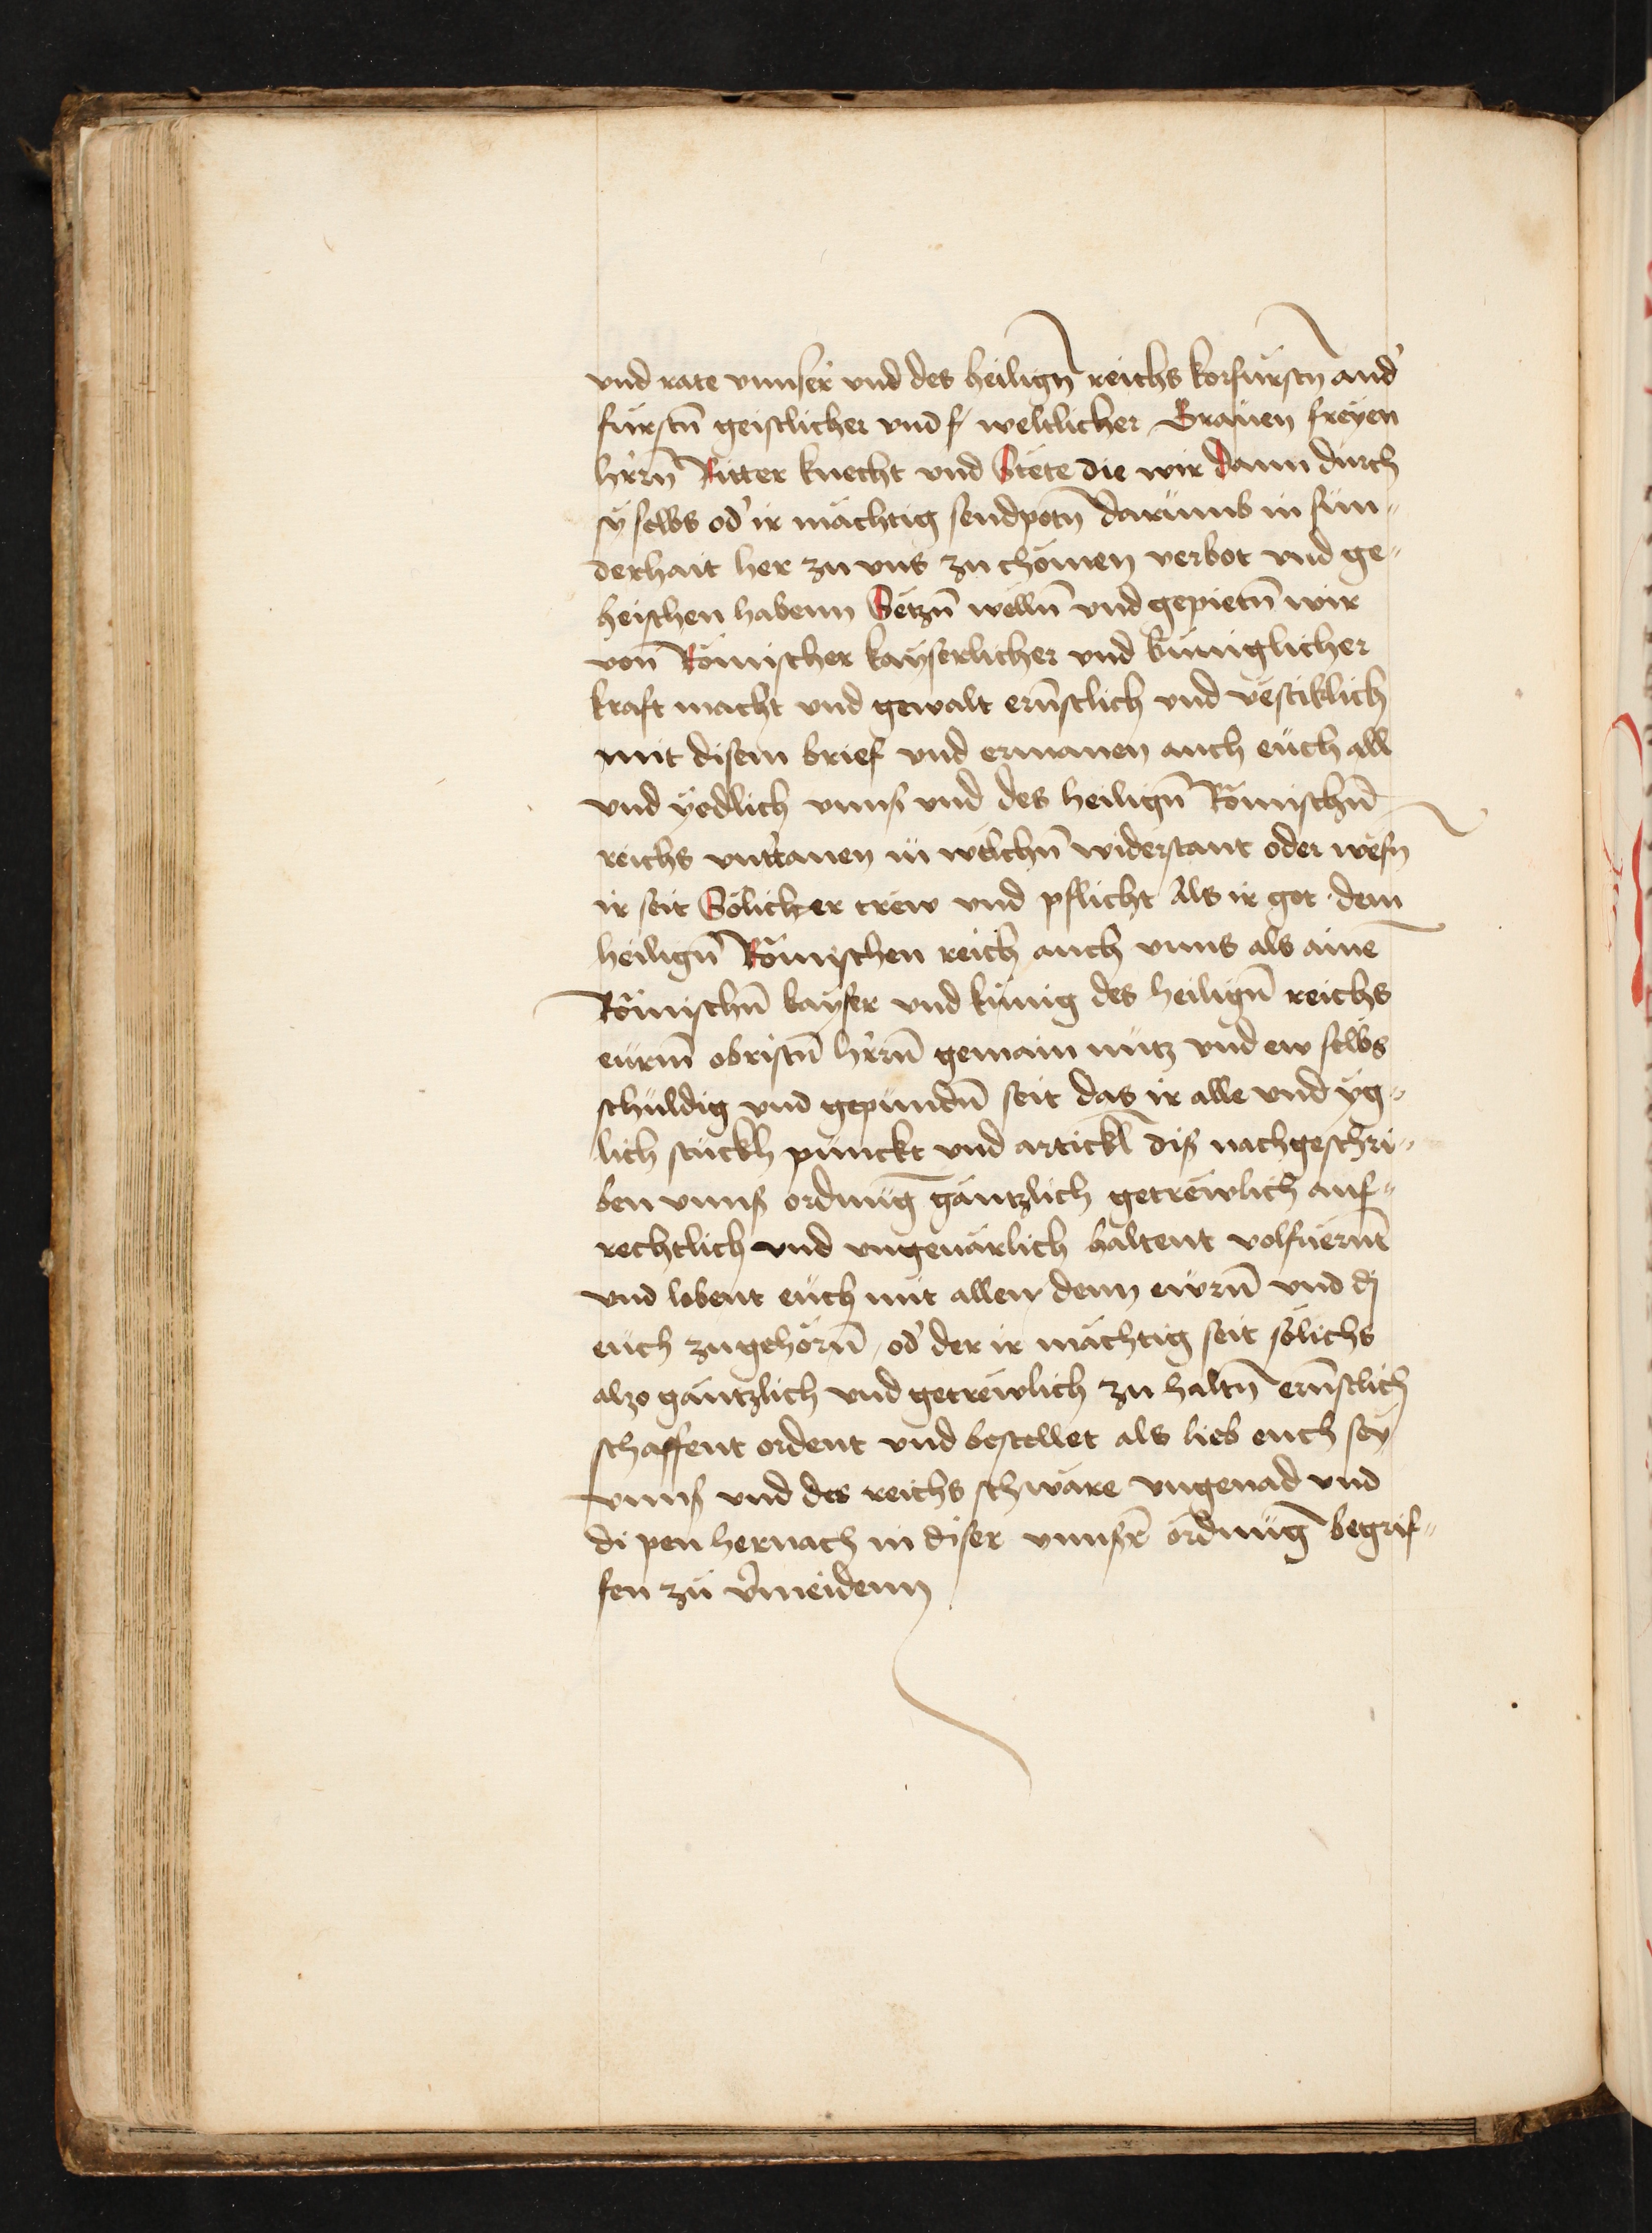 vnd rate vnnser vnd des heilign̄ reichs korfürstn̄ and'
fürstn̄ geistlicher vnd f weltlicher Grauen freyen
h'rrn̄ Ritter knecht vnd Stete die wir dann durch
sy selbs od' ir mächtig sendpotn̄ darumb in sun„
derhait her zu vns zu chömen verbot vnd ge„
heischen habenn Setzn̄ wëlln̄ vnd gepietn̄ wir
von Römischer kayserlicher vnd küniglicher
kraft macht vnd gewalt ern̄stlich vnd vëstiklich
mit disem brief vnd ermanen auch euch all
vnd yedlich vnns vnd des heilign̄ Römischn̄
reichs vnt'tanen in wëlchn̄ widerstant oder wësn̄
ir seit Sölicher trew vnd pflicht Als ir got dem
heilign̄ Römischen reich auch vnns als aine̅
Römischn̄ kayser vnd künig des heilign̄ reichs
eurm̄ obristn̄ h'rrn̄ gemain nutz vnd ew selbs
schuldig vnd gepundn̄ seit das ir alle vnd yg„
lich stuckh punckt vnd artickl̄ diß nachgeschri„
ben vnns ordnūg gäntzlich getrëwlich auf„
rechtlich vnd vngeuärlich haltent volfüern̄t
vnd lobent euch mit allen denn ewrn̄ vnd dj
euch zugehörn̄ od' der ir mächtig seit sölichs
also gäntzlich vnd getrëwlich zu haltn̄ ern̄stlich
schaffent ordent vnd bestellet als lieb euch sey
vnns vnd des reichs schwäre vngenad vnd
di pen hernach in diser vnnsr̄ ordnūg begrif„
fen zu v'meidenn